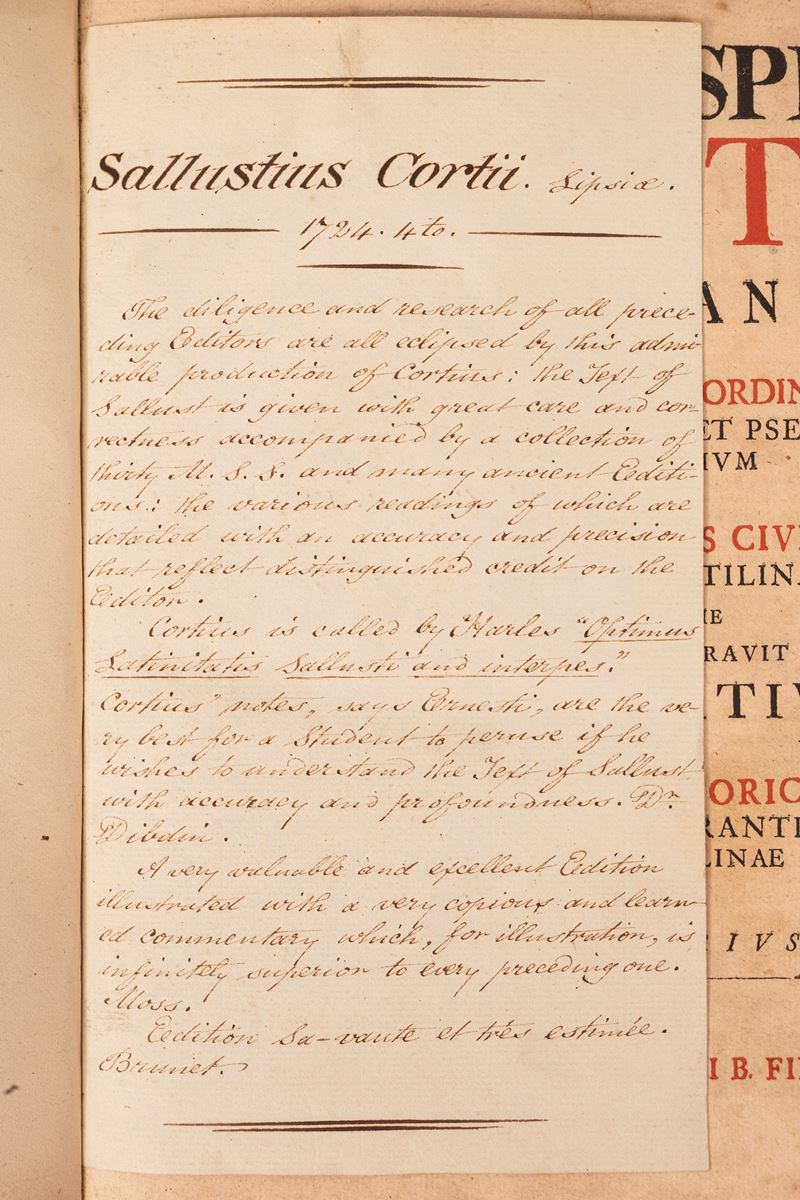 Sallustius Cortii. Lipsiæ.
1724. 4to.
The diligence and research of all prece-
ding Editors are all eclipsed by this admi-
rable production of Cortius: the Text of
Sallust is given with great care and cor-
rectness accompanied by a collection of
thirty M. S. S. and many ancient Editi-
ons: the various readings of which are
detailed with an accuracy and precision
that reflect distinguished credit on the
Editor.
Cortius is called by Harles "Optimus
Latinitatis Sallusti and interpes."
Cortius" notes, says Ernesti, are the ve-
ry best for a Student to peruse if he
wishes to understand the Text of Sallust
with accuracy and profoundness. Dr.
Dibdin.
A very valuable and excellent Edition
illustrated with a very copious and learn-
ed commentary which, for illustration, is
infinitely superior to every preceding one.
Moss.
Eedition Sa-vante et très estimée.
Brunet.
SPI
T
AN
ORDIN
ET PSE
IVM
S CIVI
TILINA
NE
RAVIT
TIV
ORIC
RANTI
LINAE
IVS
I B. FI